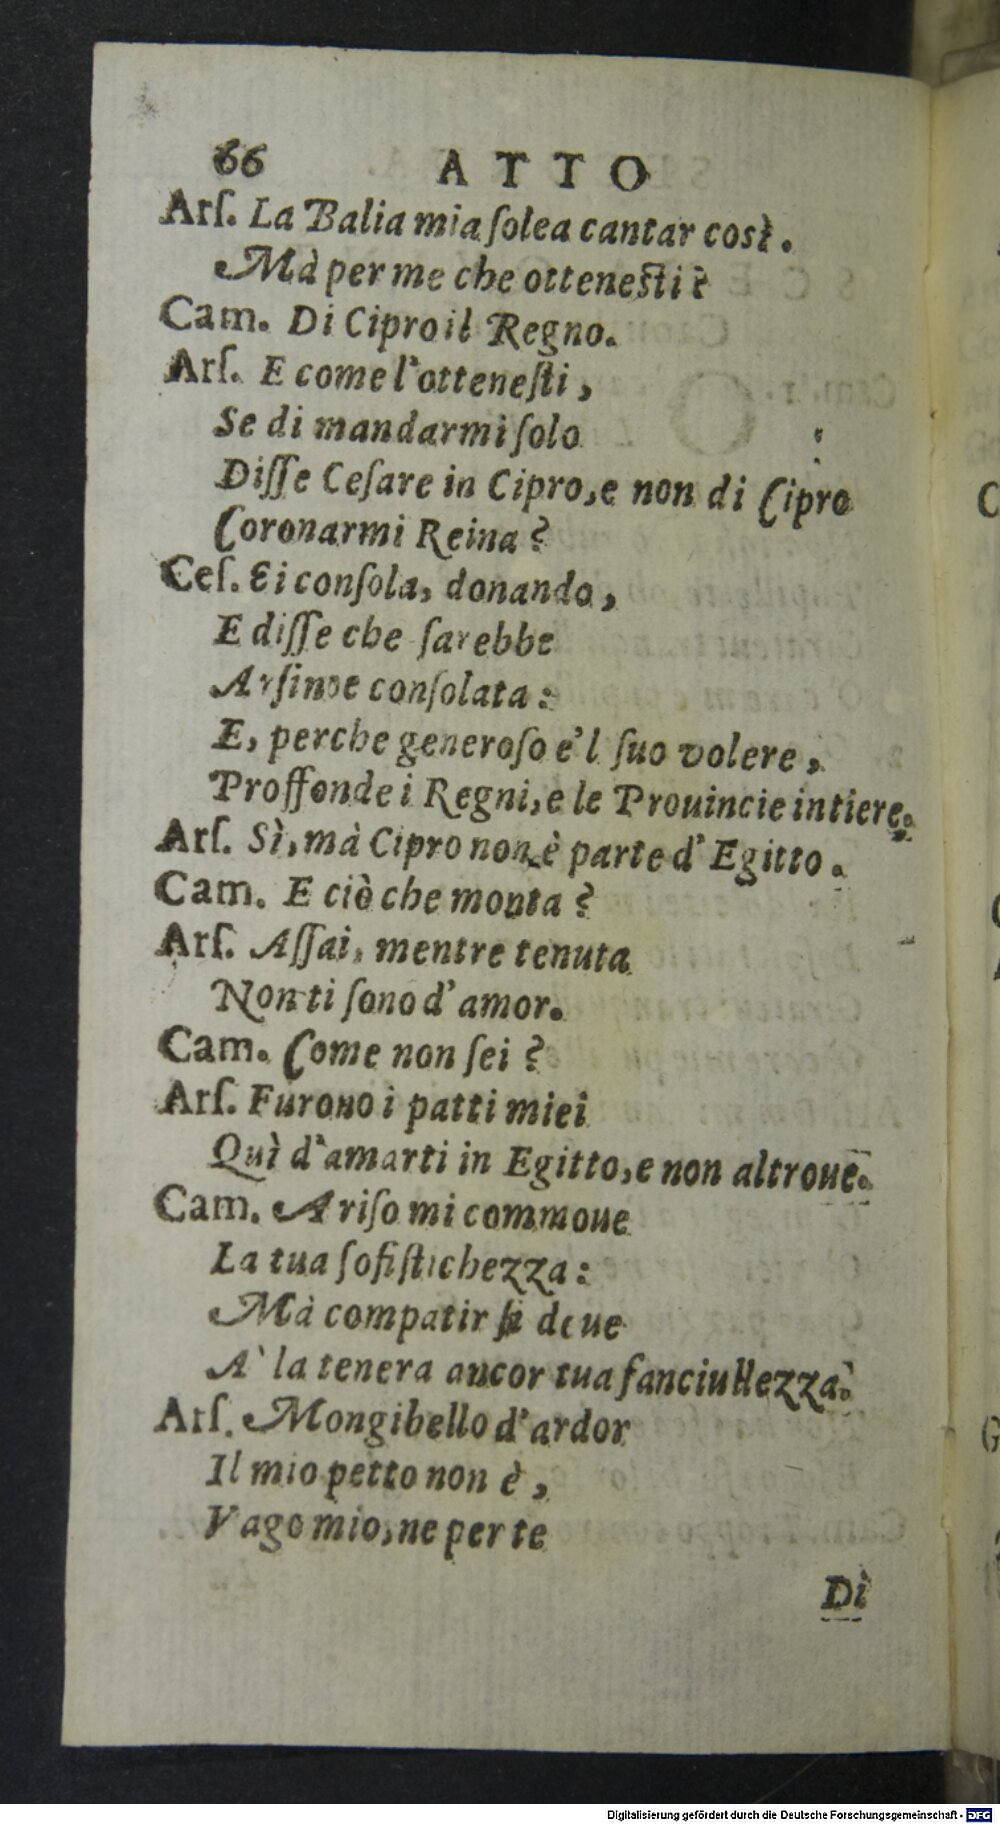 66 ATTO
Arſ. La Balia mia ſolea cantar così.
Mà per me che ottenesti?
Cam. Di Cipro il Regno.
Arſ. E come l'otteneſti,
Se di mandarmi ſolo
Diſſe Ceſare in Cipro, e non di Cipro
Coronarmi Reina?
Ceſ. Ei conſola, donando,
E diſſe che ſarebbe
Arſinoe conſolata:
E, perche generoſo e'l ſuo volere,
Proffonde i Regni, e le Prouincie intiere.
Arſ. Sì, mà Cipro non è parte d'Egitto.
Cam. E ciò che monta?
Arſ. Aſſai, mentre tenuta
Non ti ſono d'amor.
Cam. Come non ſei?
Arſ. Furono i patti miei
Quì d'amarti in Egitto, e non altroue.
Cam. A riſo mi commoue
La tua ſofiſtichezza:
Mà compatir ſi deue
A' la tenera ancor tua fanciullezza.
Arſ. Mongibello d'ardor
Il mio petto non è,
Vago mio, ne per te
Dì
Digitalisierung gefördert durch die Deutsche Forschungsgemeinschaft - DFG